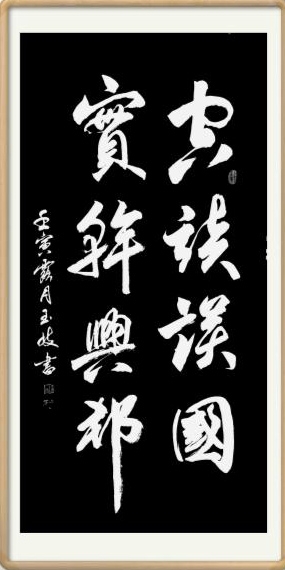 空談誤國
實幹興邦
壬寅露月玉枝書